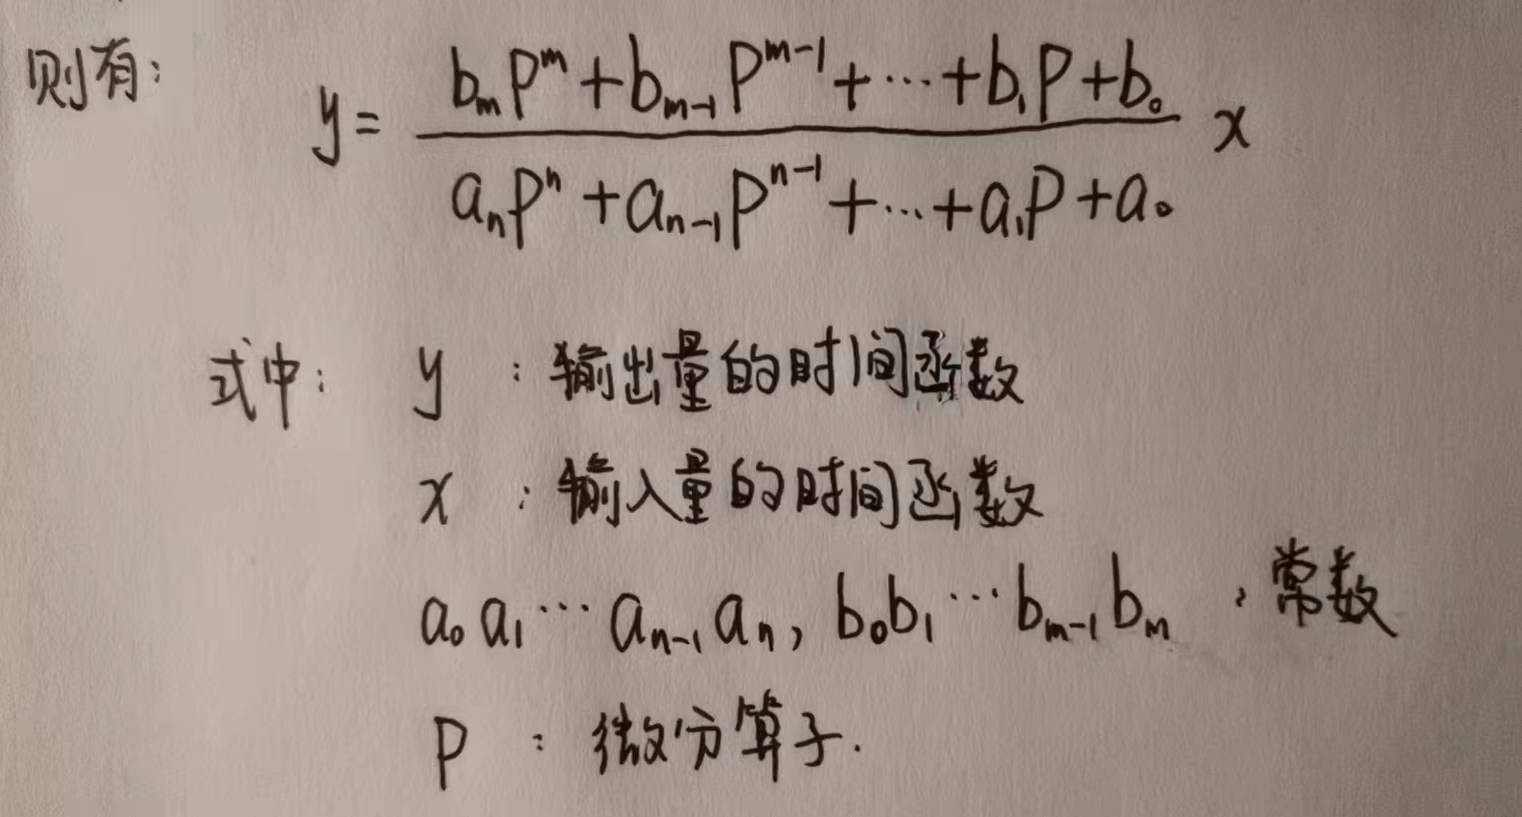 则有: y = \frac{b_m p^m + b_{m-1} p^{m-1} + \cdots + b_1 p + b_0}{a_n p^n + a_{n-1} p^{n-1} + \cdots + a_1 p + a_0} x
式中: y : 输出量的时间函数
x : 输入量的时间函数
a_0 a_1 \cdots a_{n-1} a_n, b_0 b_1 \cdots b_{m-1} b_m : 常数
p : 微分算子.